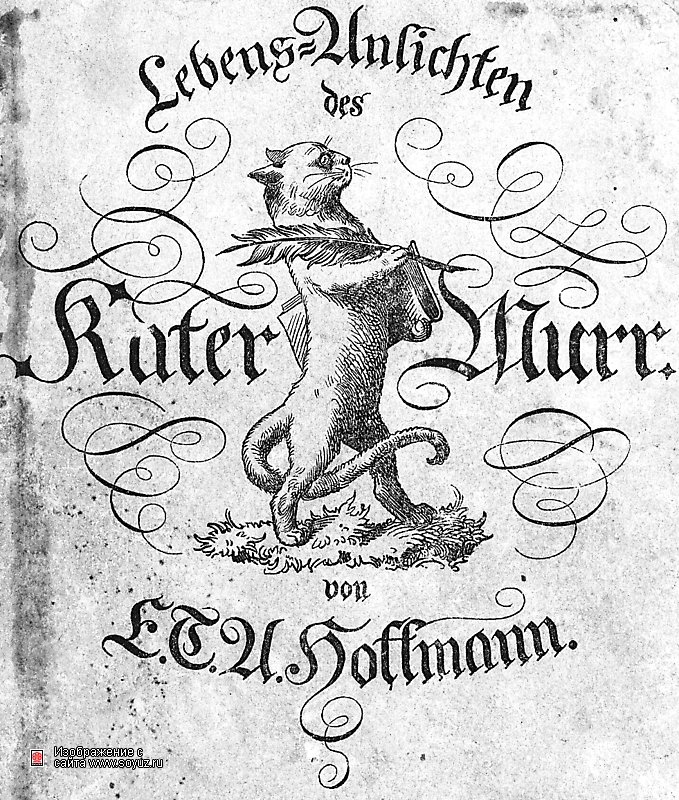 Lebens-Ansichten
des
Kater Murr.
von
E.T.A. Hoffmann.
Изображение с
сайта www.soyuz.ru